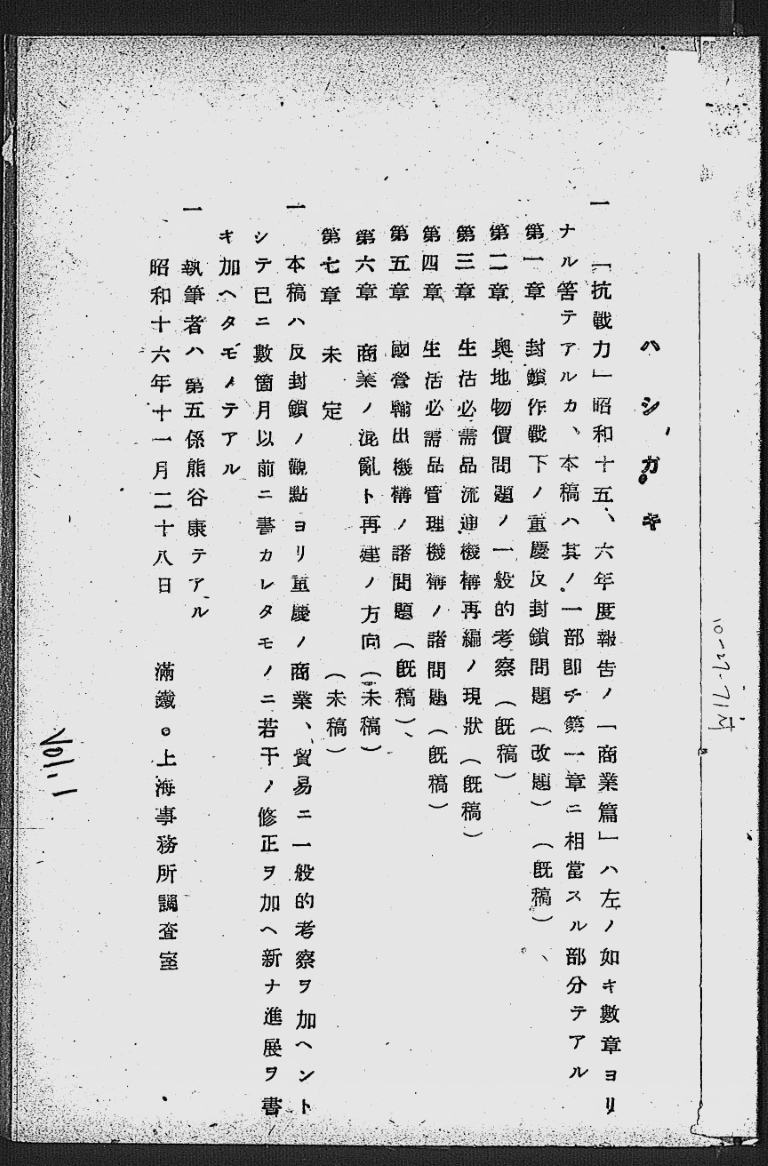 ハシガキ
一　「抗戰力」昭和十五、六年度報告ノ「商業篇」ハ左ノ如キ數章ヨリ
ナル筈テアルカ、本稿ハ其ノ一部卽チ第一章ニ相當スル部分テアル
第一章　封鎖作戰下ノ重慶反封鎖問題（改題）（既稿）、
第二章　奧地物價問題ノ一般的考察（既稿）
第三章　生活必需品流通機構再編ノ現狀（既稿）
第四章　生活必需品管理機構ノ諸問題（既稿）
第五章　國營輸出機構ノ諸問題（既稿）、
第六章　商業ノ混亂ト再建ノ方向（未稿）
第七章　未定　（未稿）
一　本稿ハ反封鎖ノ觀點ヨリ重慶ノ商業、貿易ニ一般的考察ヲ加ヘント
シテ已ニ數箇月以前ニ書カレタモノニ若干ノ修正ヲ加ヘ新ナ進展ヲ書
キ加ヘタモノテアル
一　執筆者ハ第五係熊谷康テアル
昭和十六年十一月二十八日　滿鐵。上海事務所調査室
Vol. 1